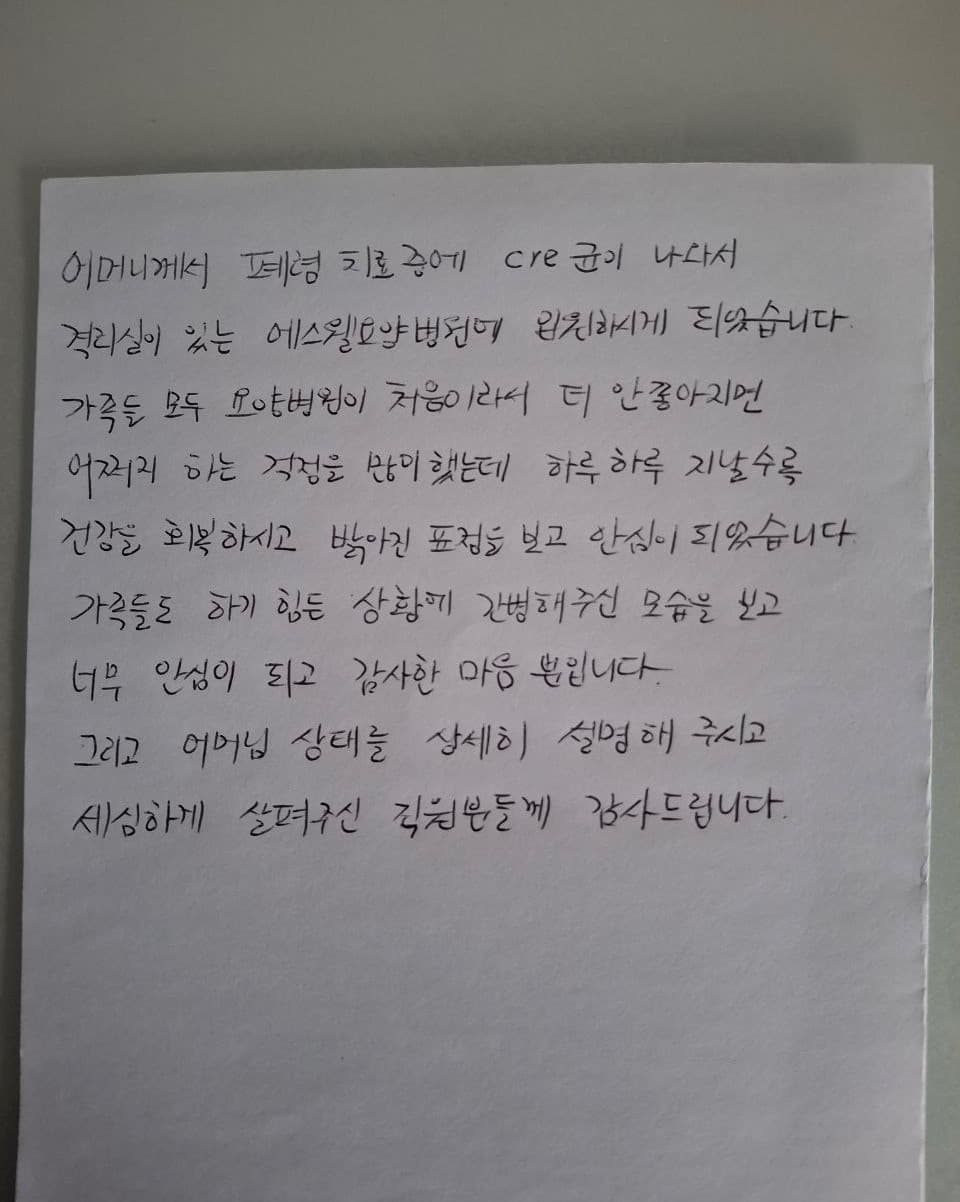 어머니께서 폐렴 치료중에 cre균이 나와서
격리실이 있는 에스웰요양병원에 입원하시게 되었습니다.
가족들 모두 요양병원이 처음이라서 더 안좋아지면
어쩌지 하는 걱정을 많이했는데 하루하루 지날수록
건강을 회복하시고 밝아진 표정을 보고 안심이 되었습니다.
가족들도 하기 힘든 상황에 간병해주신 모습을 보고
너무 안심이 되고 감사한 마음 뿐입니다.
그리고 어머님 상태를 상세히 설명해 주시고
세심하게 살펴주신 직원분들께 감사드립니다.